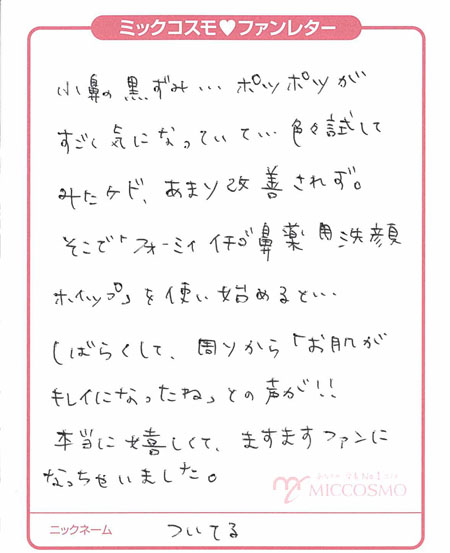 ミックコスモ♥ファンレター
小鼻の黒ずみ…ポツポツが
すごく気になっていて…色々試して
みたケド、あまり改善されず。
そこで「フォーミィ イチゴ鼻薬用洗顔
ホイップ」を使い始めると…
しばらくして、周りから「お肌が
キレイになったね」との声が!!
本当に嬉しくて、ますますファンに
なっちゃいました。
MICCOSMO
ニックネーム ついてる